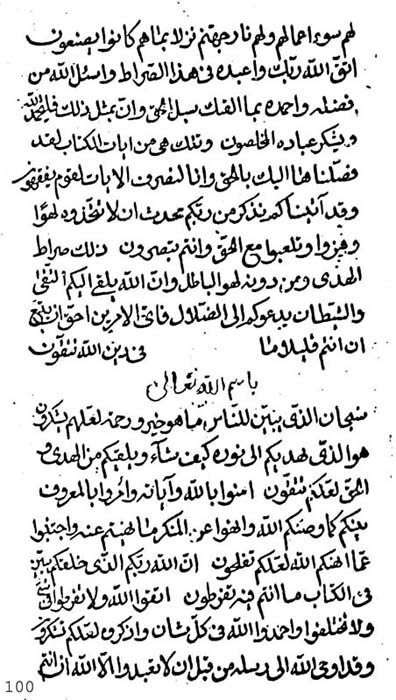 لهم سوء اعمالهم ولهم نار جهنم نزلا بما هم كانوا يصنعون
اتق الله ربك واعبده في هذا الصراط واسئل الله من
فضله واحمده بما الهمك سبل الحق وان بمثل ذلك فليحمد الله
ويشكر عباده المخلصون وتلك هي من ايات الكتاب لقد
فصلناها اليك بالحق وانا لنصرف الايات لقوم يفقهون
وقد آتيناكم تذكر من ربكم تحدث ان لا تتخذوه لهوا
وهزوا وتلعبوا مع الحق وانتم تبصرون ذلك صراط
الهدى ومن دونه لهو الباطل وان الله يلقي اليكم التقى
والشيطان يدعوكم الى الضلال فاي الامرين احق ان يتبع
ان انتم قليلا ما في دين الله تتقون
باسم الله تعالى
سبحان الذي يبين للناس ما هو خير ورحمة لعلهم يشكرون
هو الذي يهديكم الى نوره كيف شآء ويلقيكم من الهدى و
الحق لعلكم تتقون امنوا بالله وآياته وامروا بالمعروف
بينكم كما وصيكم الله وانهوا عن المنكر مما نهيتم عنه واجتنبوا
عما انهيكم الله لعلكم تفلحون ان الله ربكم الذي خلقكم يبين
في الكتاب ما انتم فيه تفرطون اتقوا الله ولا تفرطوا في
ولا تختلفوا واحمدوا الله في كل شان واذكروه لعلكم تذكرون
وقد اوحى الله الى رسله من قبل ان لا تعبدوا الا الله ان انتم
100